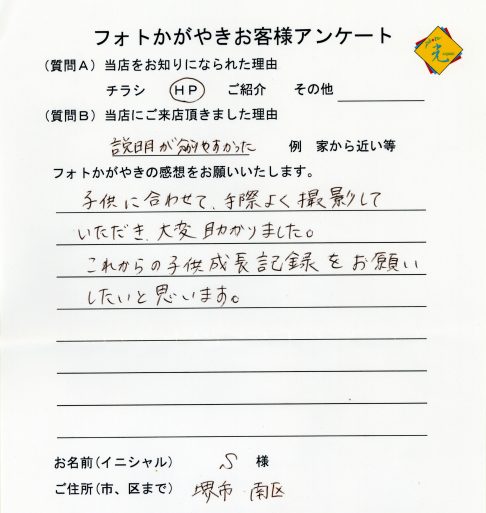 フォトかがやきお客様アンケート
光
(質問A)当店をお知りになられた理由
チラシ HP ご紹介 その他
(質問B)当店にご来店頂きました理由
説明が分りやすかった 例 家から近い等
フォトかがやきの感想をお願いいたします。
子供に合わせて、手際よく撮影して
いただき、大変助かりました。
これからの子供成長記録をお願い
したいと思います。
お名前(イニシャル) S 様
ご住所(市、区まで) 堺市 南区